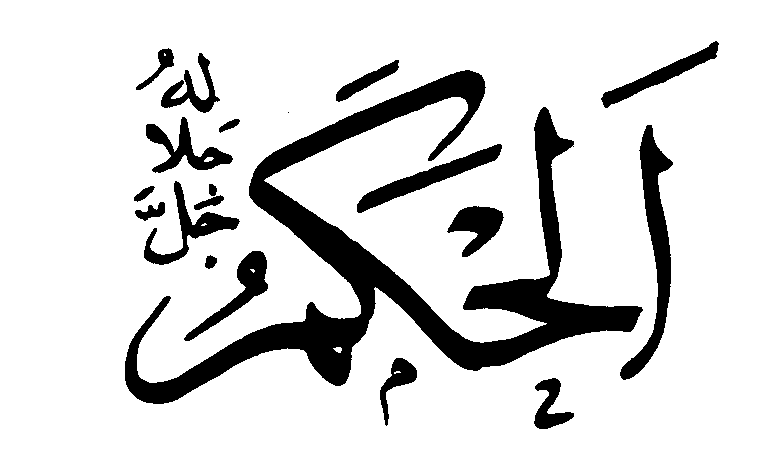 اَلْحَكَمُ
جَلَّ جَلَالُهُ